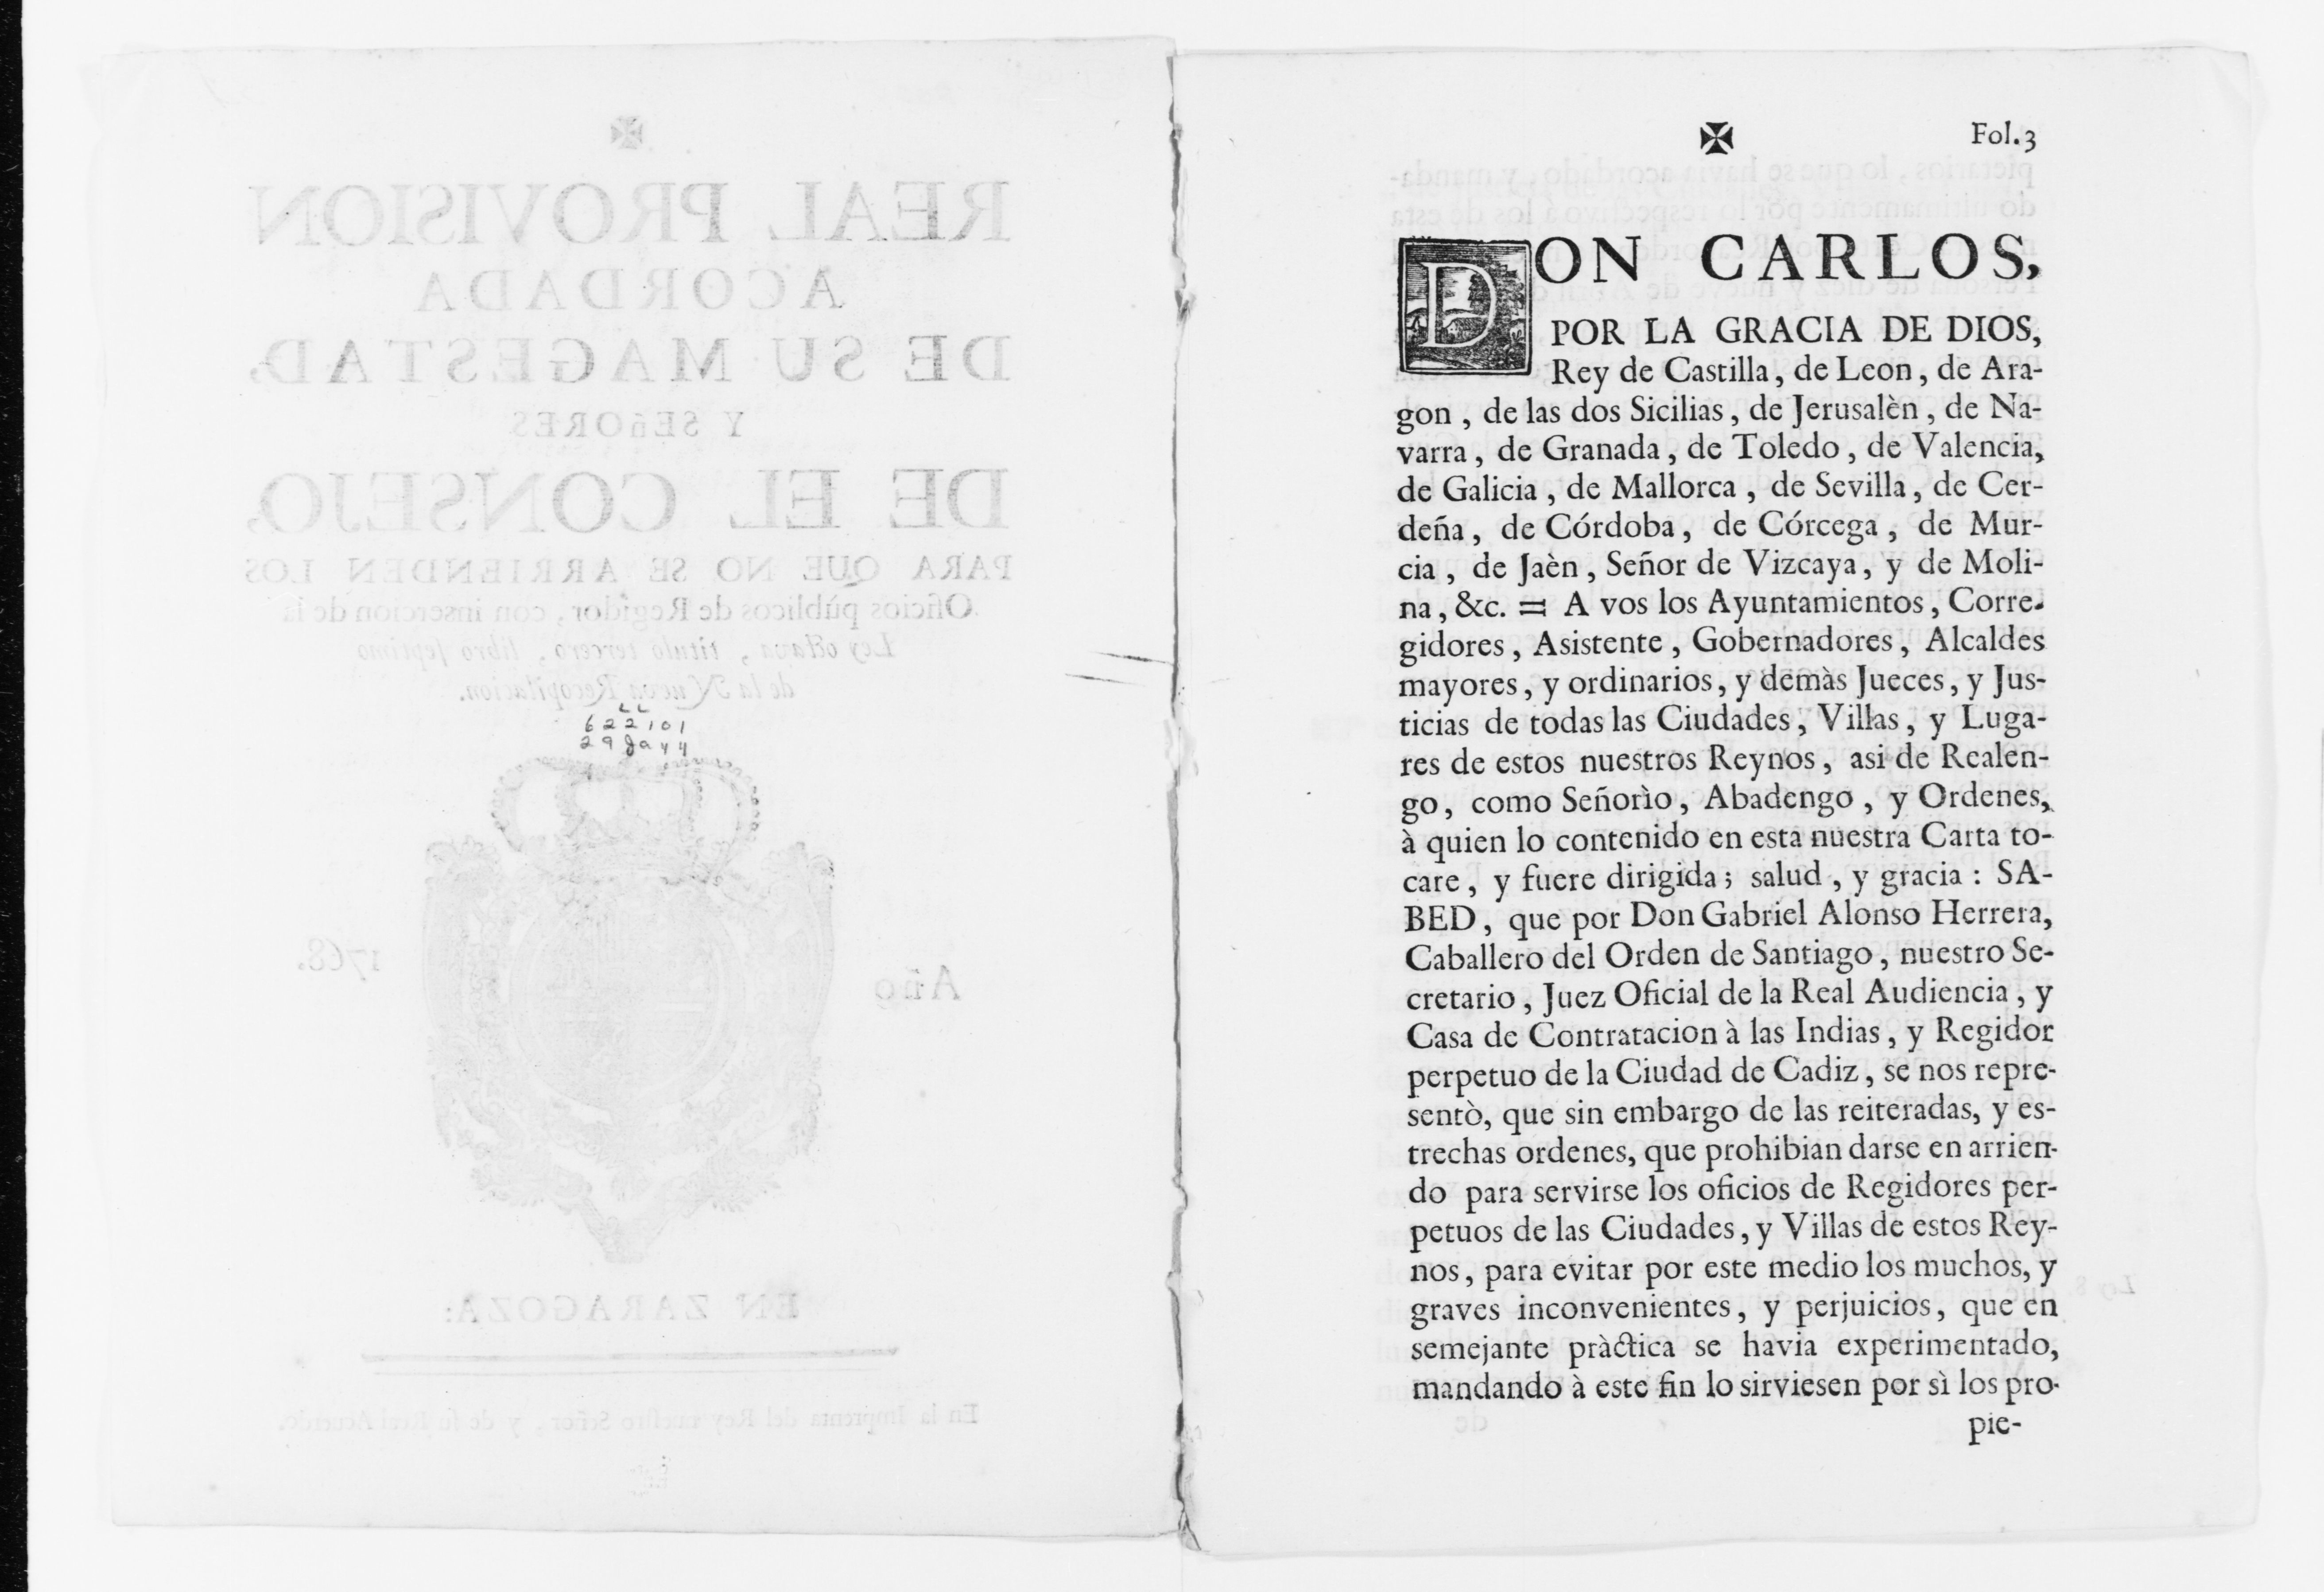 ✠
REAL PROVISION
ACORDADA
DE SU MAGESTAD,
Y SEñORES
DE EL CONSEJO,
PARA QUE NO SE ARRIENDEN LOS
Oficios pùblicos de Regidor, con insercion de la
Ley octava, titulo tercero, libro septimo
de la Nueva Recopilacion.
LL
622101
29Ja44
Año 1768.
EN ZARAGOZA:
En la Imprenta del Rey nuestro Señor, y de su Real Acuerdo.
✠ Fol.3
DON CARLOS,
POR LA GRACIA DE DIOS,
Rey de Castilla, de Leon, de Ara-
gon, de las dos Sicilias, de Jerusalèn, de Na-
varra, de Granada, de Toledo, de Valencia,
de Galicia, de Mallorca, de Sevilla, de Cer-
deña, de Córdoba, de Córcega, de Mur-
cia, de Jaèn, Señor de Vizcaya, y de Moli-
na, &c. = A vos los Ayuntamientos, Corre-
gidores, Asistente, Gobernadores, Alcaldes
mayores, y ordinarios, y demàs Jueces, y Jus-
ticias de todas las Ciudades, Villas, y Luga-
res de estos nuestros Reynos, asi de Realen-
go, como Señorìo, Abadengo, y Ordenes,
à quien lo contenido en esta nuestra Carta to-
care, y fuere dirigida; salud, y gracia: SA-
BED, que por Don Gabriel Alonso Herrera,
Caballero del Orden de Santiago, nuestro Se-
cretario, Juez Oficial de la Real Audiencia, y
Casa de Contratacion à las Indias, y Regidor
perpetuo de la Ciudad de Cadiz, se nos repre-
sentò, que sin embargo de las reiteradas, y es-
trechas ordenes, que prohibian darse en arrien-
do para servirse los oficios de Regidores per-
petuos de las Ciudades, y Villas de estos Rey-
nos, para evitar por este medio los muchos, y
graves inconvenientes, y perjuicios, que en
semejante pràctica se havia experimentado,
mandando à este fin lo sirviesen por sì los pro-
pie-